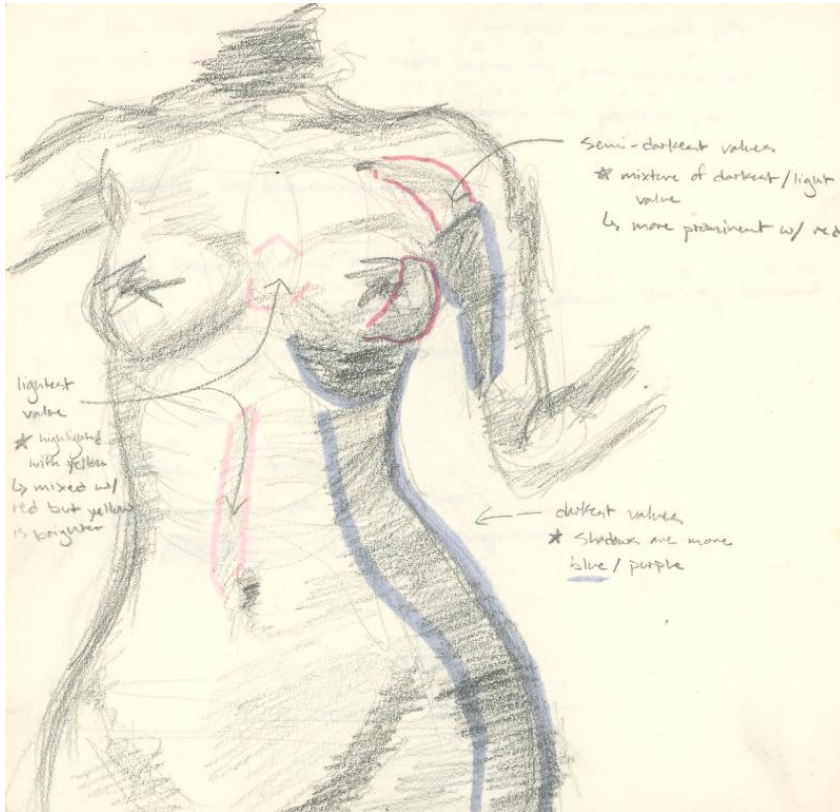 semi-darkest values
* mixture of darkest/light
value
↳ more prominent w/ red
lightest
value
* highlighted
with yellow
↳ mixed w/
red but yellow
is brighter
darkest values
* shadows are more
blue/purple